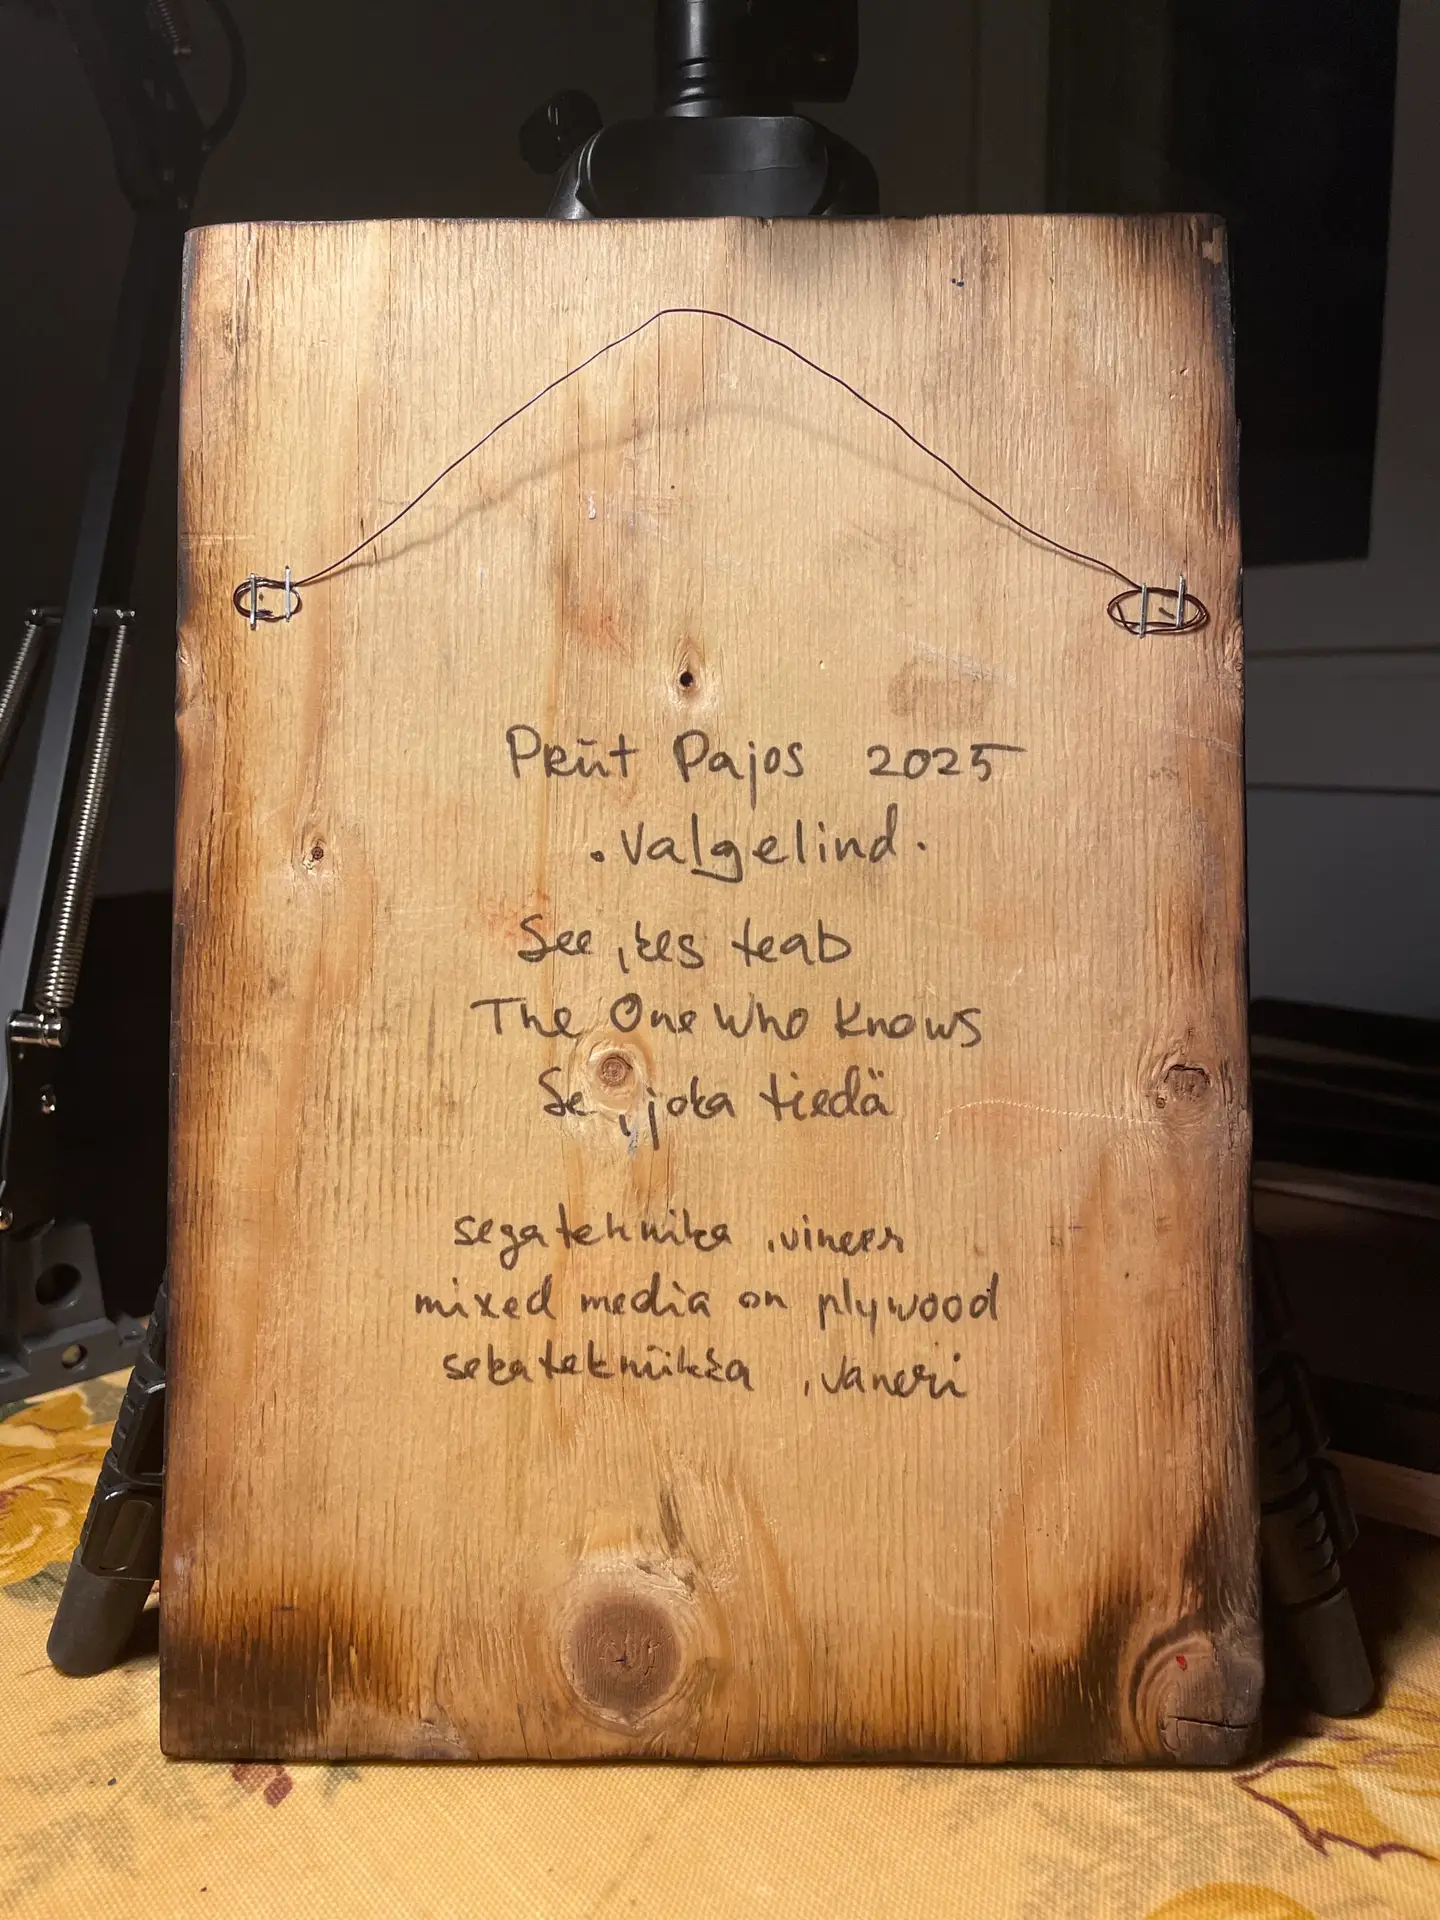 Priit Pajos 2025
.Valgelind.
See, kes teab
The One Who Knows
Se, joka tiedä
segatehnika, vineer
mixed media on plywood
sekatekniikka, vaneri